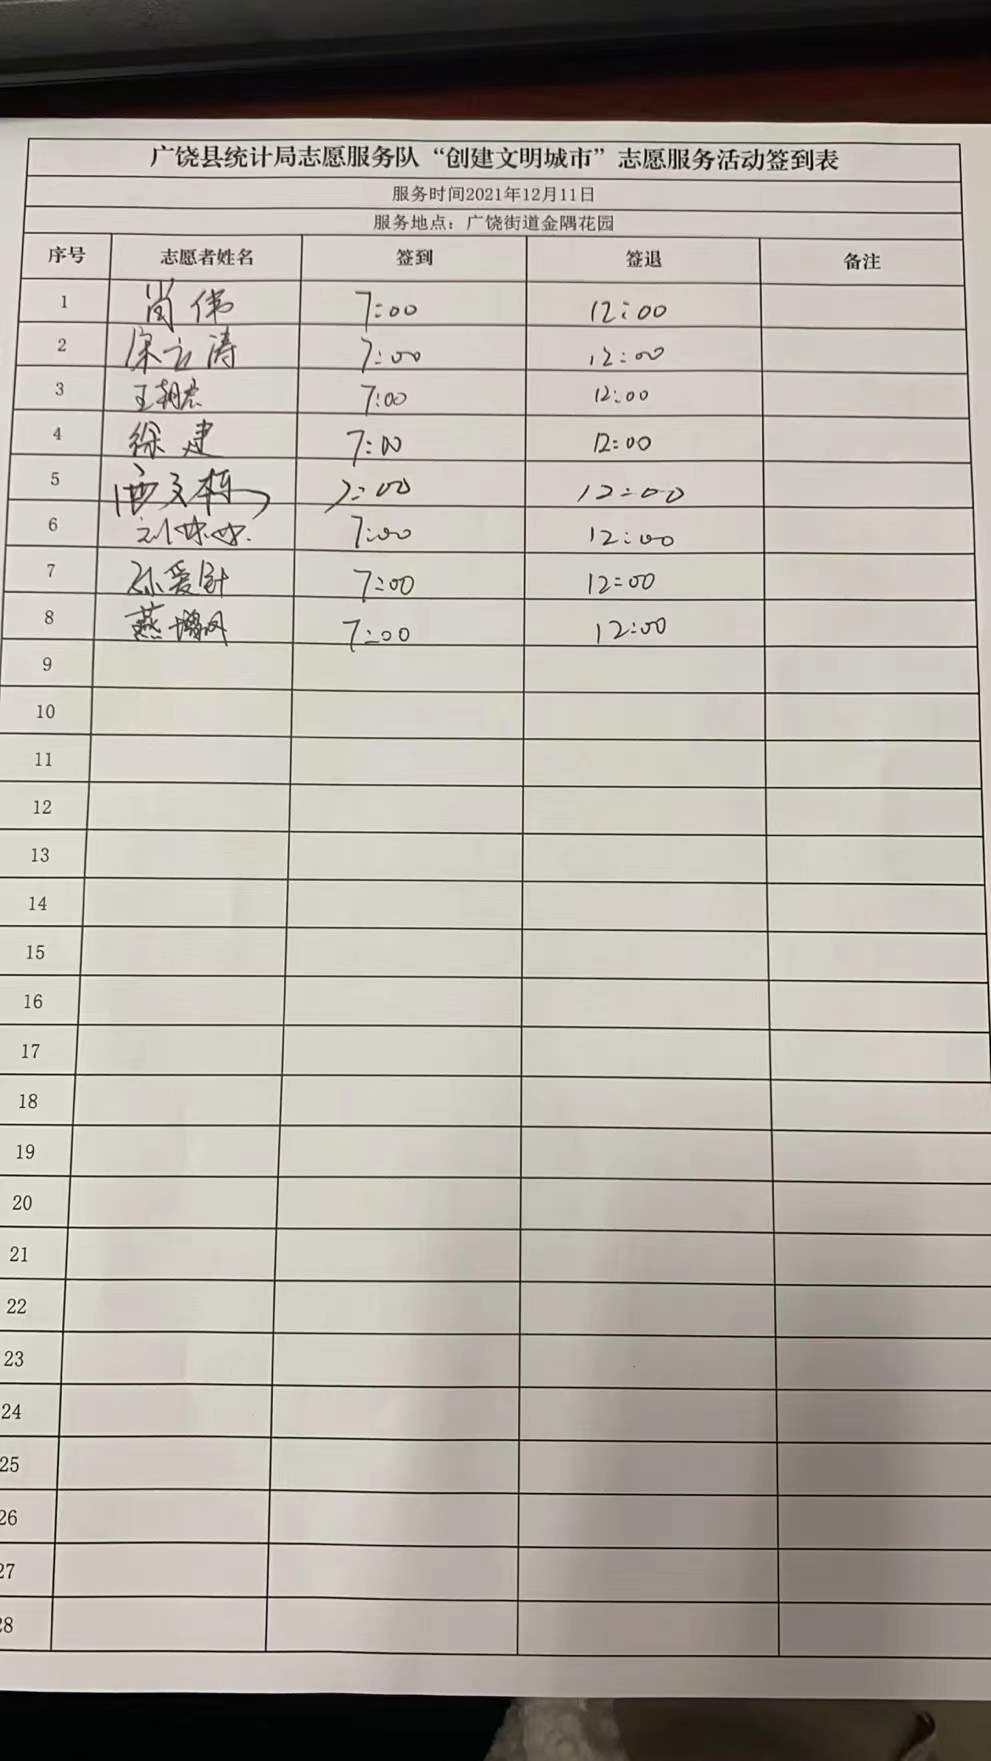 广饶县统计局志愿服务队“创建文明城市”志愿服务活动签到表
服务时间2021年12月11日
服务地点：广饶街道金隅花园
序号 志愿者姓名 签到 签退 备注
1 尚伟 7:00 12:00
2 7:00 12:00
3 王朝宏 7:00 12:00
4 徐建 7:00 12:00
5 7:00 12:00
6 刘妹妹 7:00 12:00
7 孙爱针 7:00 12:00
8 燕增风 7:00 12:00
9
10
11
12
13
14
15
16
17
18
19
20
21
22
23
24
25
26
27
28